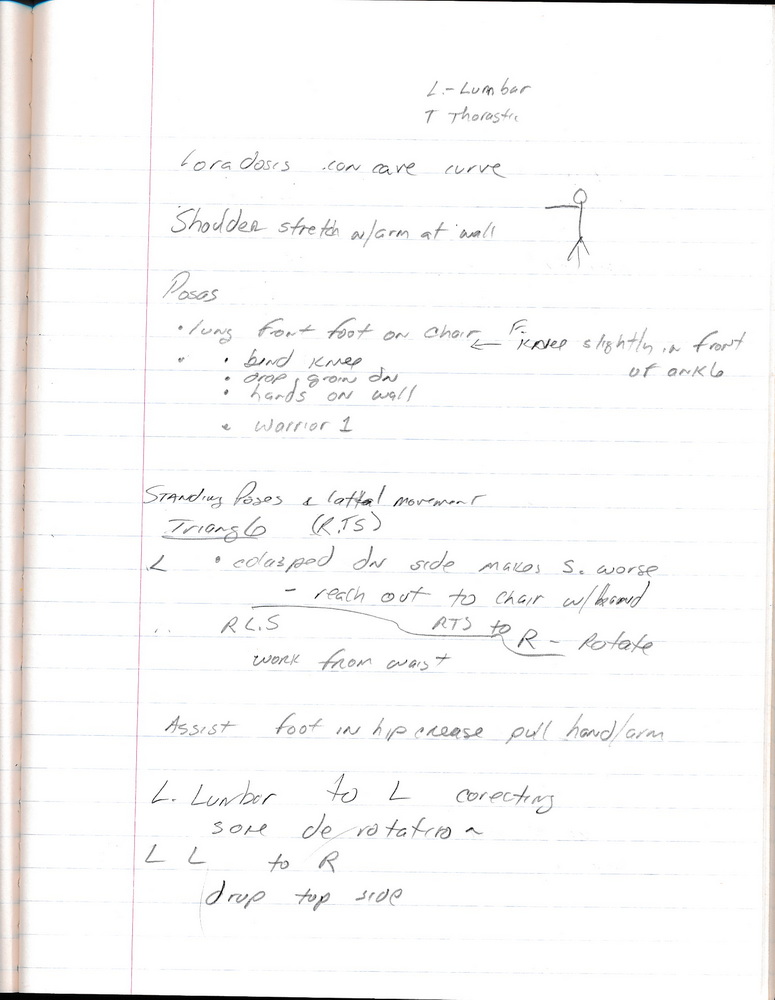 L - Lumbar
T Thorastic
Loradosis concave curve
Shoulder stretch w/arm at wall
Poses
• lung front foot on chair ← F. knee slightly in front
of ankle
• • bend knee
• drop groin dn
• hands on wall
• Warrior 1
Standing Poses & lateral movement
Triangle (R.TS)
L • colasped dn side makes S. worse
- reach out to chair w/
RLS RTS to R - Rotate
work from waist
Assist foot in hip crease pull hand/arm
L. Lumbar to L corecting
some de rotation
L L to R
drop top side